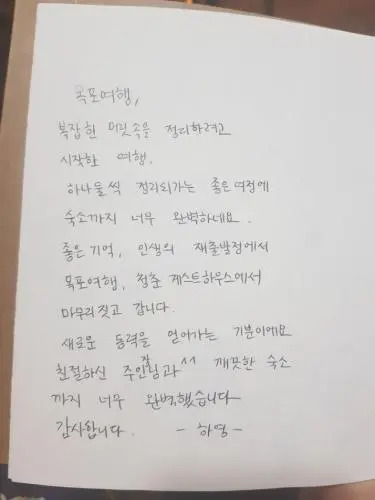 목포여행,
복잡한 머릿속을 정리하려고
시작한 여행.
하나둘씩 정리되가는 좋은여정에
숙소까지 너무 완벽하네요.
좋은기억, 인생의 재출발점에서
목포여행, 청춘 게스트하우스에서
마무리짓고 갑니다.
새로운 동력을 얻어가는 기분이에요
친절하신 주인장님과^^ 깨끗한 숙소
까지 너무 완벽했습니다
감사합니다. - 하영 -